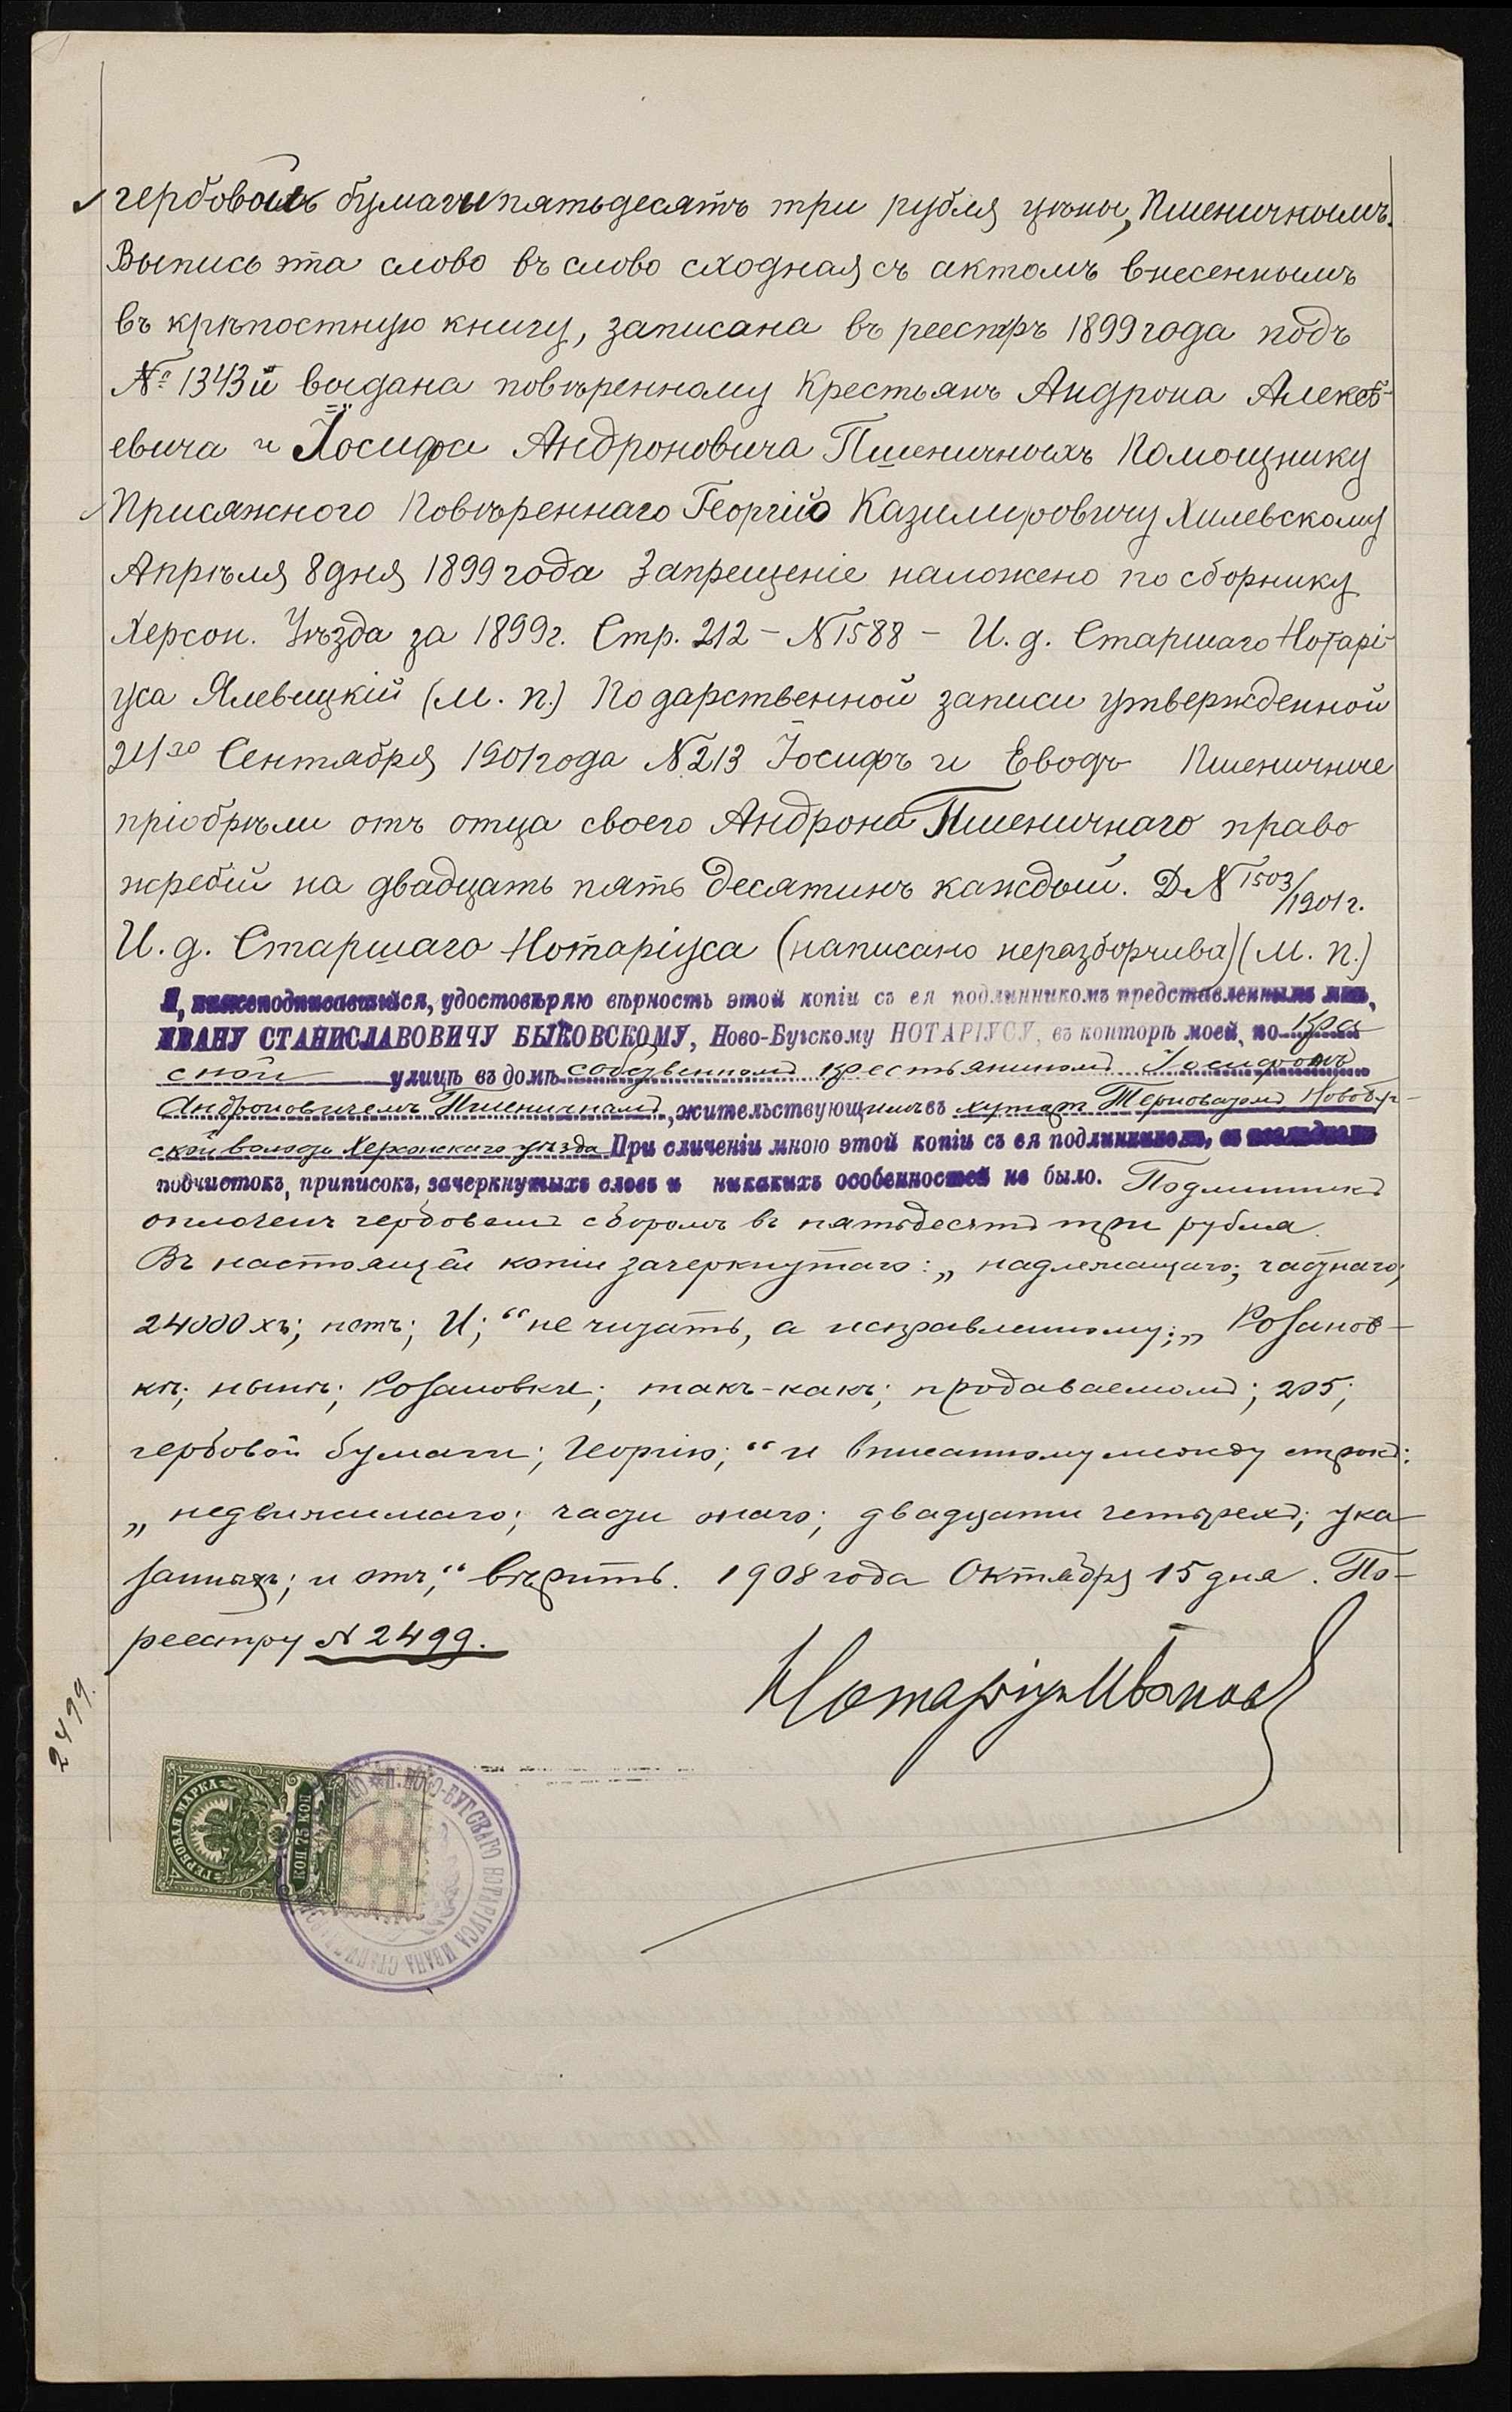 гербовой бумаги пятьдесятъ три рубля цѣны, Пшеничнымъ.
Выпись эта слово въ слово сходная съ актомъ внесеннымъ
въ крѣпостную книгу, записана въ реестръ 1899 года подъ
№ 1343 и выдана повѣренному Крестьянъ Андрона Алексѣ-
евича и Іосифа Андроновича Пшеничныхъ Помощнику
Присяжного Повѣреннаго Георгію Казимировичу Хилевскому
Апрѣля 8 дня 1899 года Запрещеніе наложено по сборнику
Херсон. Уѣзда за 1899 г. Стр. 212 - N 1588 - И. д. Старшаго Нотарі-
уса Ялевицкій (М. п.) По дарственной записи утвержденной
21го Сентября 1901 года N 213 Іосифъ и Еводъ Пшеничные
пріобрѣли отъ отца своего Андрона Пшеничнаго право
жребій на двадцать пять десятинъ каждый. Д N 1503/1901 г.
И. д. Старшаго Нотаріуса (написано неразборчива) (М. п.)
Я, нижеподписавшійся, удостовѣряю вѣрность этой копіи съ ея подлинникомъ представленнымъ мнѣ,
ИВАНУ СТАНИСЛАВОВИЧУ БЫКОВСКОМУ, Ново-Бугскому НОТАРІУСУ, въ конторѣ моей, по
ской улицѣ въ домѣ собственномъ крестьяниномъ Іосифомъ
Андроновичемъ Пшеничнымъ, жительствующимъ въ хуторѣ Терноватомъ Новобуг-
ской волости Херсонскаго уѣзда При сличеніи мною этой копіи съ ея подлинникомъ, въ послѣднемъ
подчистокъ, приписокъ, зачеркнутыхъ словъ и никакихъ особенностей не было. Подлинникъ
оплоченъ гербовымъ сборомъ въ пятьдесятъ три рубля.
Въ настоящей копіи зачеркнутаго: „надлежащаго; частнаго;
24000 хъ; нетъ; И;“ не читать, а исправленному: „Розанов-
кѣ; нынѣ; Розановки; такъ-какъ; продаваемомъ; 205;
гербовой бумаги; Георгію;“ и вписанному между строкъ:
„недвижимаго; части онаго; двадцати четырехъ; ука-
занныхъ; и отъ;“ вѣрить. 1908 года Октября 15 дня. По-
реестру N 2499.
Нотаріусъ Ив
2499.
ГЕРБОВАЯ МАРКА
КОП 75 КОП
П. НОВО-БУГСКАГО НОТАРІУСА ИВАНА